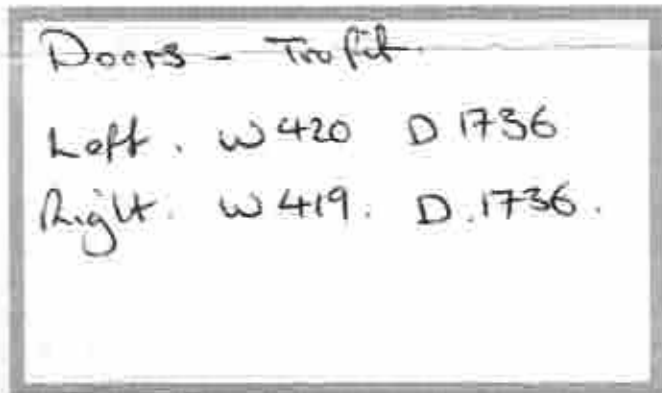 Doors - Trofit.
Left. W 420 D 1736
Right. W 419. D. 1736.